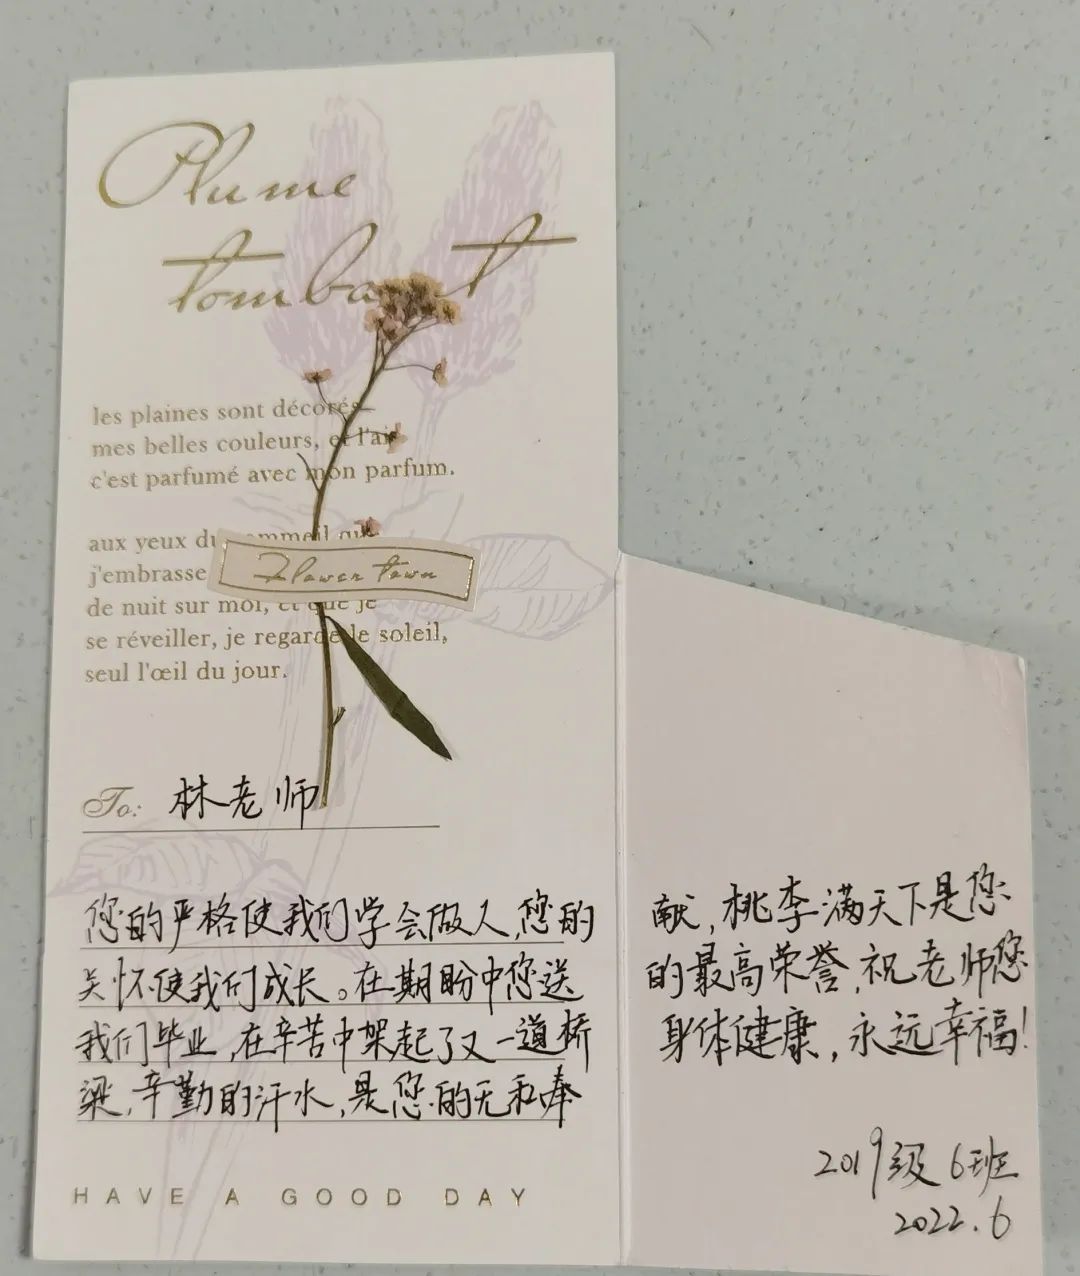 Plume
tombant
les plaines sont décorés
mes belles couleurs, et l'air
c'est parfumé avec mon parfum.
aux yeux du sommeil que
j'embrasse
Flower town
de nuit sur moi, et que je
se réveiller, je regarde le soleil,
seul l'œil du jour.
To: 林老师
您的严格使我们学会做人,您的
关怀使我们成长。在期盼中您送
我们毕业,在辛苦中架起了又一道桥
梁,辛勤的汗水,是您的无私奉
HAVE A GOOD DAY
献,桃李满天下是您
的最高荣誉,祝老师您
身体健康,永远幸福!
2019级6班
2022.6